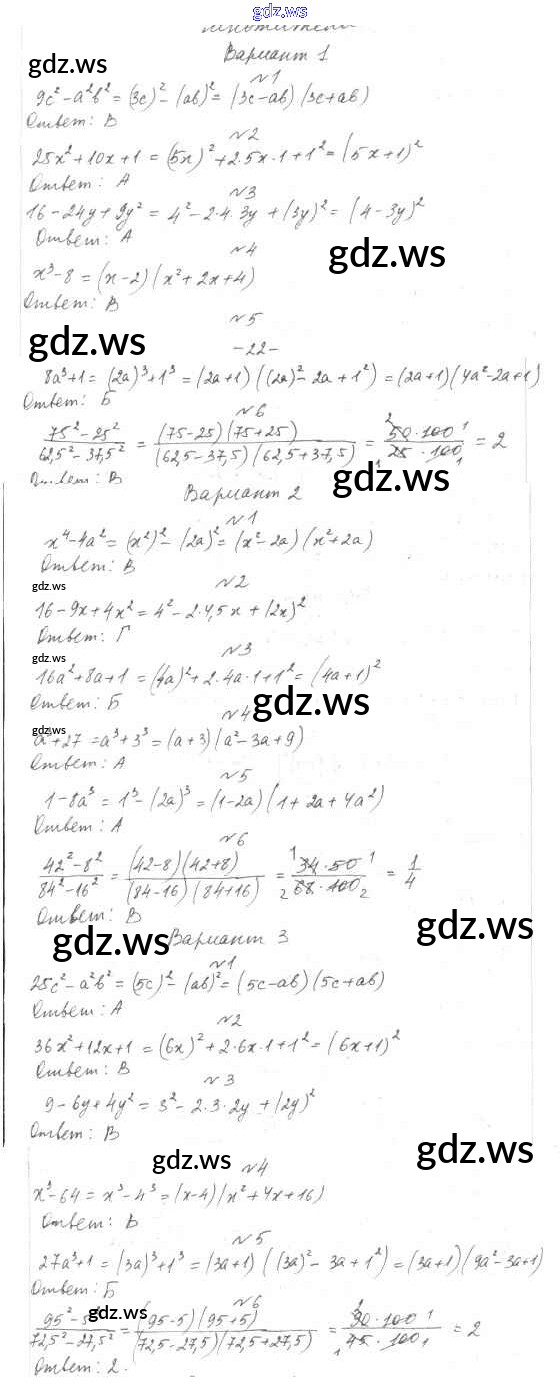 gdz.ws
множители
Вариант 1
gdz.ws
№1
9c² - a²b² = (3c)² - (ab)² = (3c-ab)(3c+ab)
Ответ: В
№2
25x² + 10x + 1 = (5x)² + 2·5x·1 + 1² = (5x+1)²
Ответ: А
№3
16 - 24y + 9y² = 4² - 2·4·3y + (3y)² = (4-3y)²
Ответ: А
gdz.ws
№4
x³ - 8 = (x-2)(x² + 2x + 4)
Ответ: В
№5
gdz.ws
-22-
8a³ + 1 = (2a)³ + 1³ = (2a+1)((2a)² - 2a + 1²) = (2a+1)(4a² - 2a + 1)
Ответ: Б
№6
(75² - 25²)/(62,5² - 37,5²) = ((75-25)(75+25))/((62,5-37,5)(62,5+37,5)) = (50·100)/(25·100) = 2
Ответ: В
gdz.ws
Вариант 2
№1
x⁴ - 4a² = (x²)² - (2a)² = (x² - 2a)(x² + 2a)
Ответ: В
gdz.ws
№2
16 - 9x + 4x² = 4² - 2·4,5x + (2x)²
Ответ: Г
№3
gdz.ws
16a² + 8a + 1 = (4a)² + 2·4a·1 + 1² = (4a+1)²
Ответ: Б
gdz.ws
№4
gdz.ws
a³ + 27 = a³ + 3³ = (a+3)(a² - 3a + 9)
Ответ: А
№5
1 - 8a³ = 1³ - (2a)³ = (1-2a)(1 + 2a + 4a²)
Ответ: А
№6
(42² - 8²)/(84² - 16²) = ((42-8)(42+8))/((84-16)(84+16)) = (34·50)/(68·100) = 1/4
Ответ: В
gdz.ws
gdz.ws
Вариант 3
№1
25c² - a²b² = (5c)² - (ab)² = (5c-ab)(5c+ab)
Ответ: А
№2
36x² + 12x + 1 = (6x)² + 2·6x·1 + 1² = (6x+1)²
Ответ: В
№3
9 - 6y + 4y² = 3² - 2·3·2y + (2y)²
Ответ: В
gdz.ws
gdz.ws
№4
x³ - 64 = x³ - 4³ = (x-4)(x² + 4x + 16)
Ответ: В
№5
27a³ + 1 = (3a)³ + 1³ = (3a+1)((3a)² - 3a + 1²) = (3a+1)(9a² - 3a + 1)
Ответ: Б
№6
gdz.ws
(95² - 5²)/(72,5² - 27,5²) = ((95-5)(95+5))/((72,5-27,5)(72,5+27,5)) = (90·100)/(45·100) = 2
Ответ: 2.